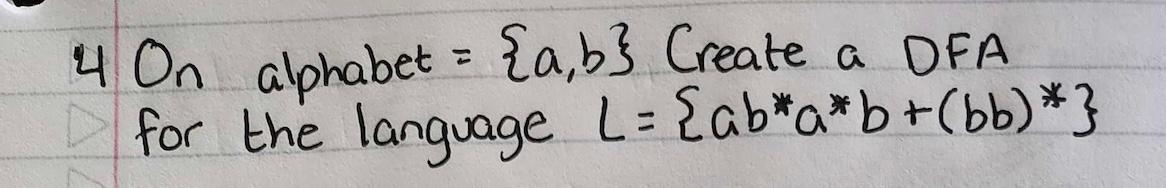 4 On alphabet = {a,b} Create a DFA
for the language L = {ab*a*b+(bb)*}